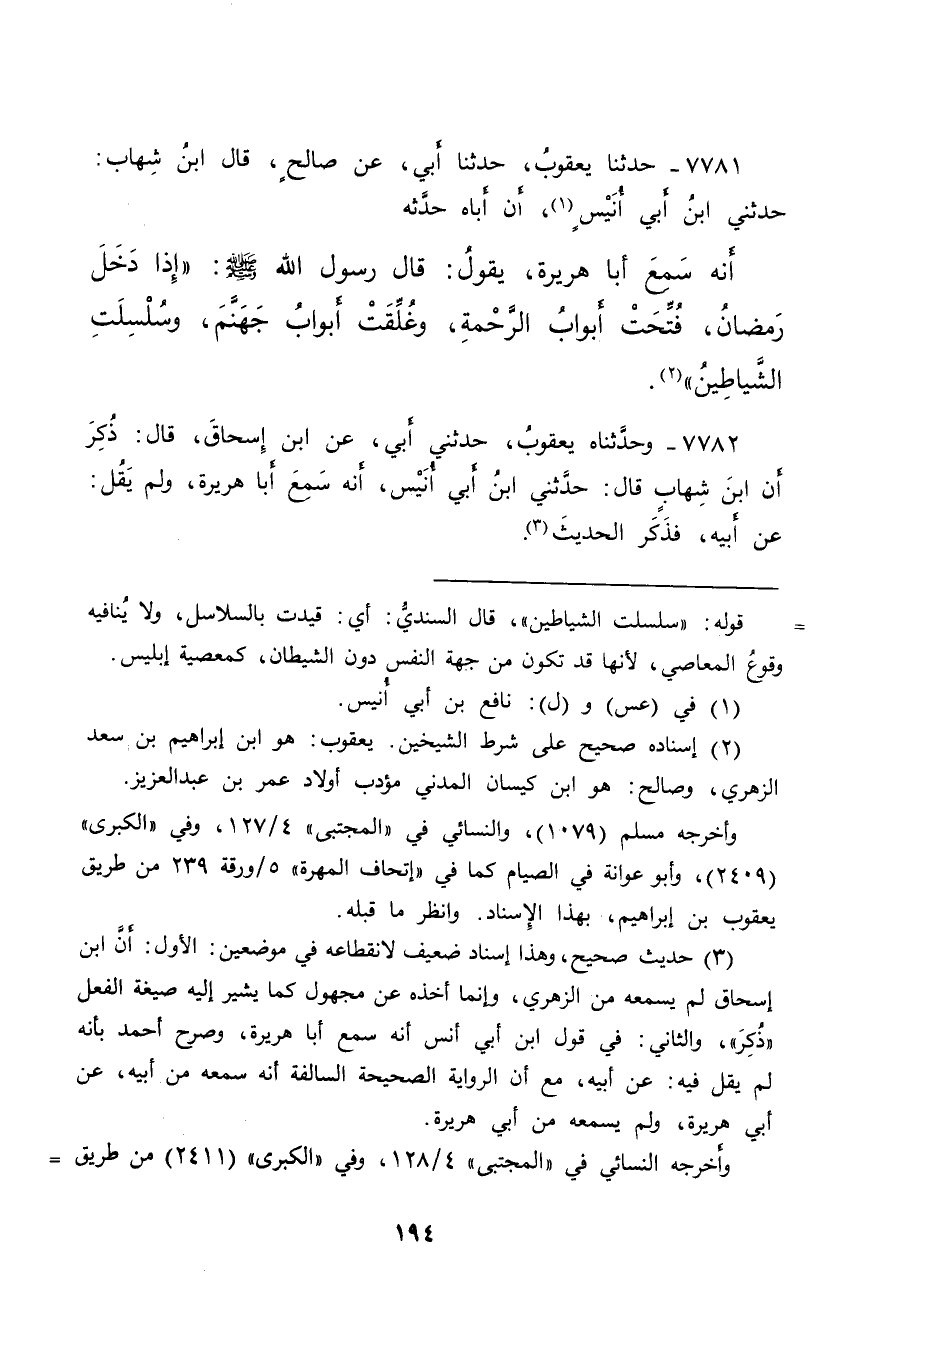 ٧٧٨١ - حدثنا يعقوبُ، حدثنا أَبي، عن صالحٍ، قال ابنُ شِهاب:
حدثني ابنُ أَبي أُنَيْسٍ(١)، أَن أَباه حدَّثه
أَنه سَمِعَ أبا هريرة، يقولُ: قال رسول الله ﷺ: «إِذا دَخَلَ
رَمضانُ، فُتِّحَتْ أَبوابُ الرَّحْمةِ، وغُلِّقَتْ أَبوابُ جَهَنَّمَ، وسُلْسِلَتِ
الشَّياطِينُ»(٢).
٧٧٨٢ - وحدَّثناه يعقوبُ، حدثني أَبي، عن ابن إِسحاقَ، قال: ذُكِرَ
أَن ابنَ شِهابٍ قال: حدَّثني ابنُ أَبي أُنَيْس، أَنه سَمِعَ أَبا هريرة، ولم يَقُل:
عن أَبيه، فذَكَر الحديثَ(٣).
= قوله: «سلسلت الشياطين»، قال السنديُّ: أي: قيدت بالسلاسل، ولا يُنافيه
وقوعُ المعاصي، لأنها قد تكون من جهة النفس دون الشيطان، كمعصية إبليس.
(١) في (عس) و (ل): نافع بن أبي أُنيس.
(٢) إسناده صحيح على شرط الشيخين. يعقوب: هو ابن إبراهيم بن سعد
الزهري، وصالح: هو ابن كيسان المدني مؤدب أولاد عمر بن عبدالعزيز.
وأخرجه مسلم (١٠٧٩)، والنسائي في «المجتبى» ١٢٧/٤، وفي «الكبرى»
(٢٤٠٩)، وأبو عوانة في الصيام كما في «إتحاف المهرة» ٥/ورقة ٢٣٩ من طريق
يعقوب بن إبراهيم، بهذا الإسناد. وانظر ما قبله.
(٣) حديث صحيح، وهذا إسناد ضعيف لانقطاعه في موضعين: الأول: أنَّ ابن
إسحاق لم يسمعه من الزهري، وإنما أخذه عن مجهول كما يشير إليه صيغة الفعل
«ذُكِرَ»، والثاني: في قول ابن أبي أنس أنه سمع أبا هريرة، وصرح أحمد بأنه
لم يقل فيه: عن أبيه، مع أن الرواية الصحيحة السالفة أنه سمعه من أبيه، عن
أبي هريرة، ولم يسمعه من أبي هريرة.
وأخرجه النسائي في «المجتبى» ١٢٨/٤، وفي «الكبرى» (٢٤١١) من طريق =
١٩٤